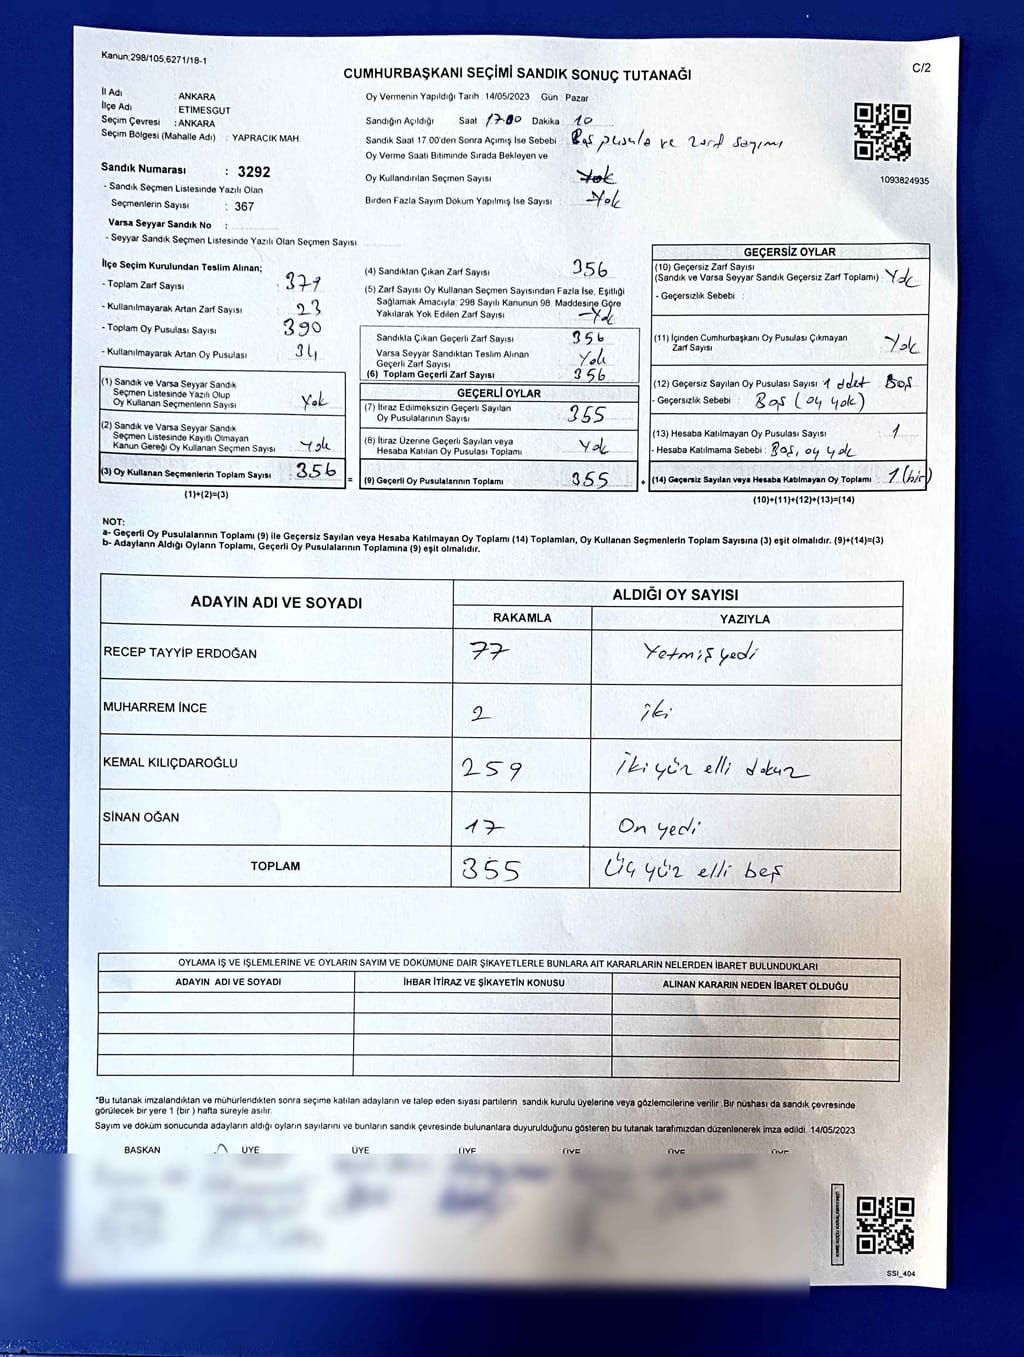 Kanun;298/105,6271/18-1
C/2
CUMHURBAŞKANI SEÇİMİ SANDIK SONUÇ TUTANAĞI
İl Adı : ANKARA
İlçe Adı : ETİMESGUT
Seçim Çevresi : ANKARA
Seçim Bölgesi (Mahalle Adı) : YAPRACIK MAH.
Sandık Numarası : 3292
- Sandık Seçmen Listesinde Yazılı Olan
Seçmenlerin Sayısı : 367
Varsa Seyyar Sandık No :
- Seyyar Sandık Seçmen Listesinde Yazılı Olan Seçmen Sayısı
Oy Vermenin Yapıldığı Tarih :14/05/2023 Gün : Pazar
Sandığın Açıldığı Saat 17:00 Dakika 10
Sandık Saat 17:00'den Sonra Açımış İse Sebebi Boş pusula ve zarf sayımı
Oy Verme Saati Bitiminde Sırada Bekleyen ve
Oy Kullandırılan Seçmen Sayısı Yok
Birden Fazla Sayım Döküm Yapılmış İse Sayısı Yok
1093824935
İlçe Seçim Kurulundan Teslim Alınan;
- Toplam Zarf Sayısı : 379
- Kullanılmayarak Artan Zarf Sayısı : 23
- Toplam Oy Pusulası Sayısı : 390
- Kullanılmayarak Artan Oy Pusulası : 34
(1) Sandık ve Varsa Seyyar Sandık
Seçmen Listesinde Yazılı Olup
Oy Kullanan Seçmenlerin Sayısı : Yok
(2) Sandık ve Varsa Seyyar Sandık
Seçmen Listesinde Kayıtlı Olmayan
Kanun Gereği Oy Kullanan Seçmen Sayısı : Yok
(3) Oy Kullanan Seçmenlerin Toplam Sayısı : 356
(1)+(2)=(3)
(4) Sandıktan Çıkan Zarf Sayısı 356
(5) Zarf Sayısı Oy Kullanan Seçmen Sayısından Fazla İse, Eşitliği
Sağlamak Amacıyla; 298 Sayılı Kanunun 98. Maddesine Göre
Yakılarak Yok Edilen Zarf Sayısı Yok
Sandıkla Çıkan Geçerli Zarf Sayısı 356
Varsa Seyyar Sandıktan Teslim Alınan
Geçerli Zarf Sayısı Yok
(6) Toplam Geçerli Zarf Sayısı 356
GEÇERLİ OYLAR
(7) İtiraz Edilmeksizin Geçerli Sayılan
Oy Pusulalarının Sayısı 355
(8) İtiraz Üzerine Geçerli Sayılan veya
Hesaba Katılan Oy Pusulası Toplamı Yok
= (9) Geçerli Oy Pusulalarının Toplamı 355
GEÇERSİZ OYLAR
(10) Geçersiz Zarf Sayısı
(Sandık ve Varsa Seyyar Sandık Geçersiz Zarf Toplamı) Yok
- Geçersizlik Sebebi :
(11) İçinden Cumhurbaşkanı Oy Pusulası Çıkmayan
Zarf Sayısı Yok
(12) Geçersiz Sayılan Oy Pusulası Sayısı 1 adet Boş
- Geçersizlik Sebebi : Boş (oy yok)
(13) Hesaba Katılmayan Oy Pusulası Sayısı : 1
- Hesaba Katılmama Sebebi : Boş, oy yok
+ (14) Geçersiz Sayılan veya Hesaba Katılmayan Oy Toplamı : 1 (bir)
(10)+(11)+(12)+(13)=(14)
NOT:
a- Geçerli Oy Pusulalarının Toplamı (9) ile Geçersiz Sayılan veya Hesaba Katılmayan Oy Toplamı (14) Toplamları, Oy Kullanan Seçmenlerin Toplam Sayısına (3) eşit olmalıdır. (9)+(14)=(3)
b- Adayların Aldığı Oyların Toplamı, Geçerli Oy Pusulalarının Toplamına (9) eşit olmalıdır.
ADAYIN ADI VE SOYADI ALDIĞI OY SAYISI
RAKAMLA YAZIYLA
RECEP TAYYİP ERDOĞAN 77 Yetmiş yedi
MUHARREM İNCE 2 iki
KEMAL KILIÇDAROĞLU 259 İki yüz elli dokuz
SİNAN OĞAN 17 On yedi
TOPLAM 355 Üç yüz elli beş
OYLAMA İŞ VE İŞLEMLERİNE VE OYLARIN SAYIM VE DÖKÜMÜNE DAİR ŞİKAYETLERLE BUNLARA AİT KARARLARIN NELERDEN İBARET BULUNDUKLARI
ADAYIN ADI VE SOYADI İHBAR İTİRAZ VE ŞİKAYETİN KONUSU ALINAN KARARIN NEDEN İBARET OLDUĞU
*Bu tutanak imzalandıktan ve mühürlendikten sonra seçime katılan adayların ve talep eden siyasi partilerin sandık kurulu üyelerine veya gözlemcilerine verilir .Bir nüshası da sandık çevresinde
görülecek bir yere 1 (bir ) hafta süreyle asılır.
Sayım ve döküm sonucunda adayların aldığı oyların sayılarını ve bunların sandık çevresinde bulunanlara duyurulduğunu gösteren bu tutanak tarafımızdan düzenlenerek imza edildi. 14/05/2023
BAŞKAN ÜYE ÜYE ÜYE ÜYE ÜYE ÜYE
SSI_404